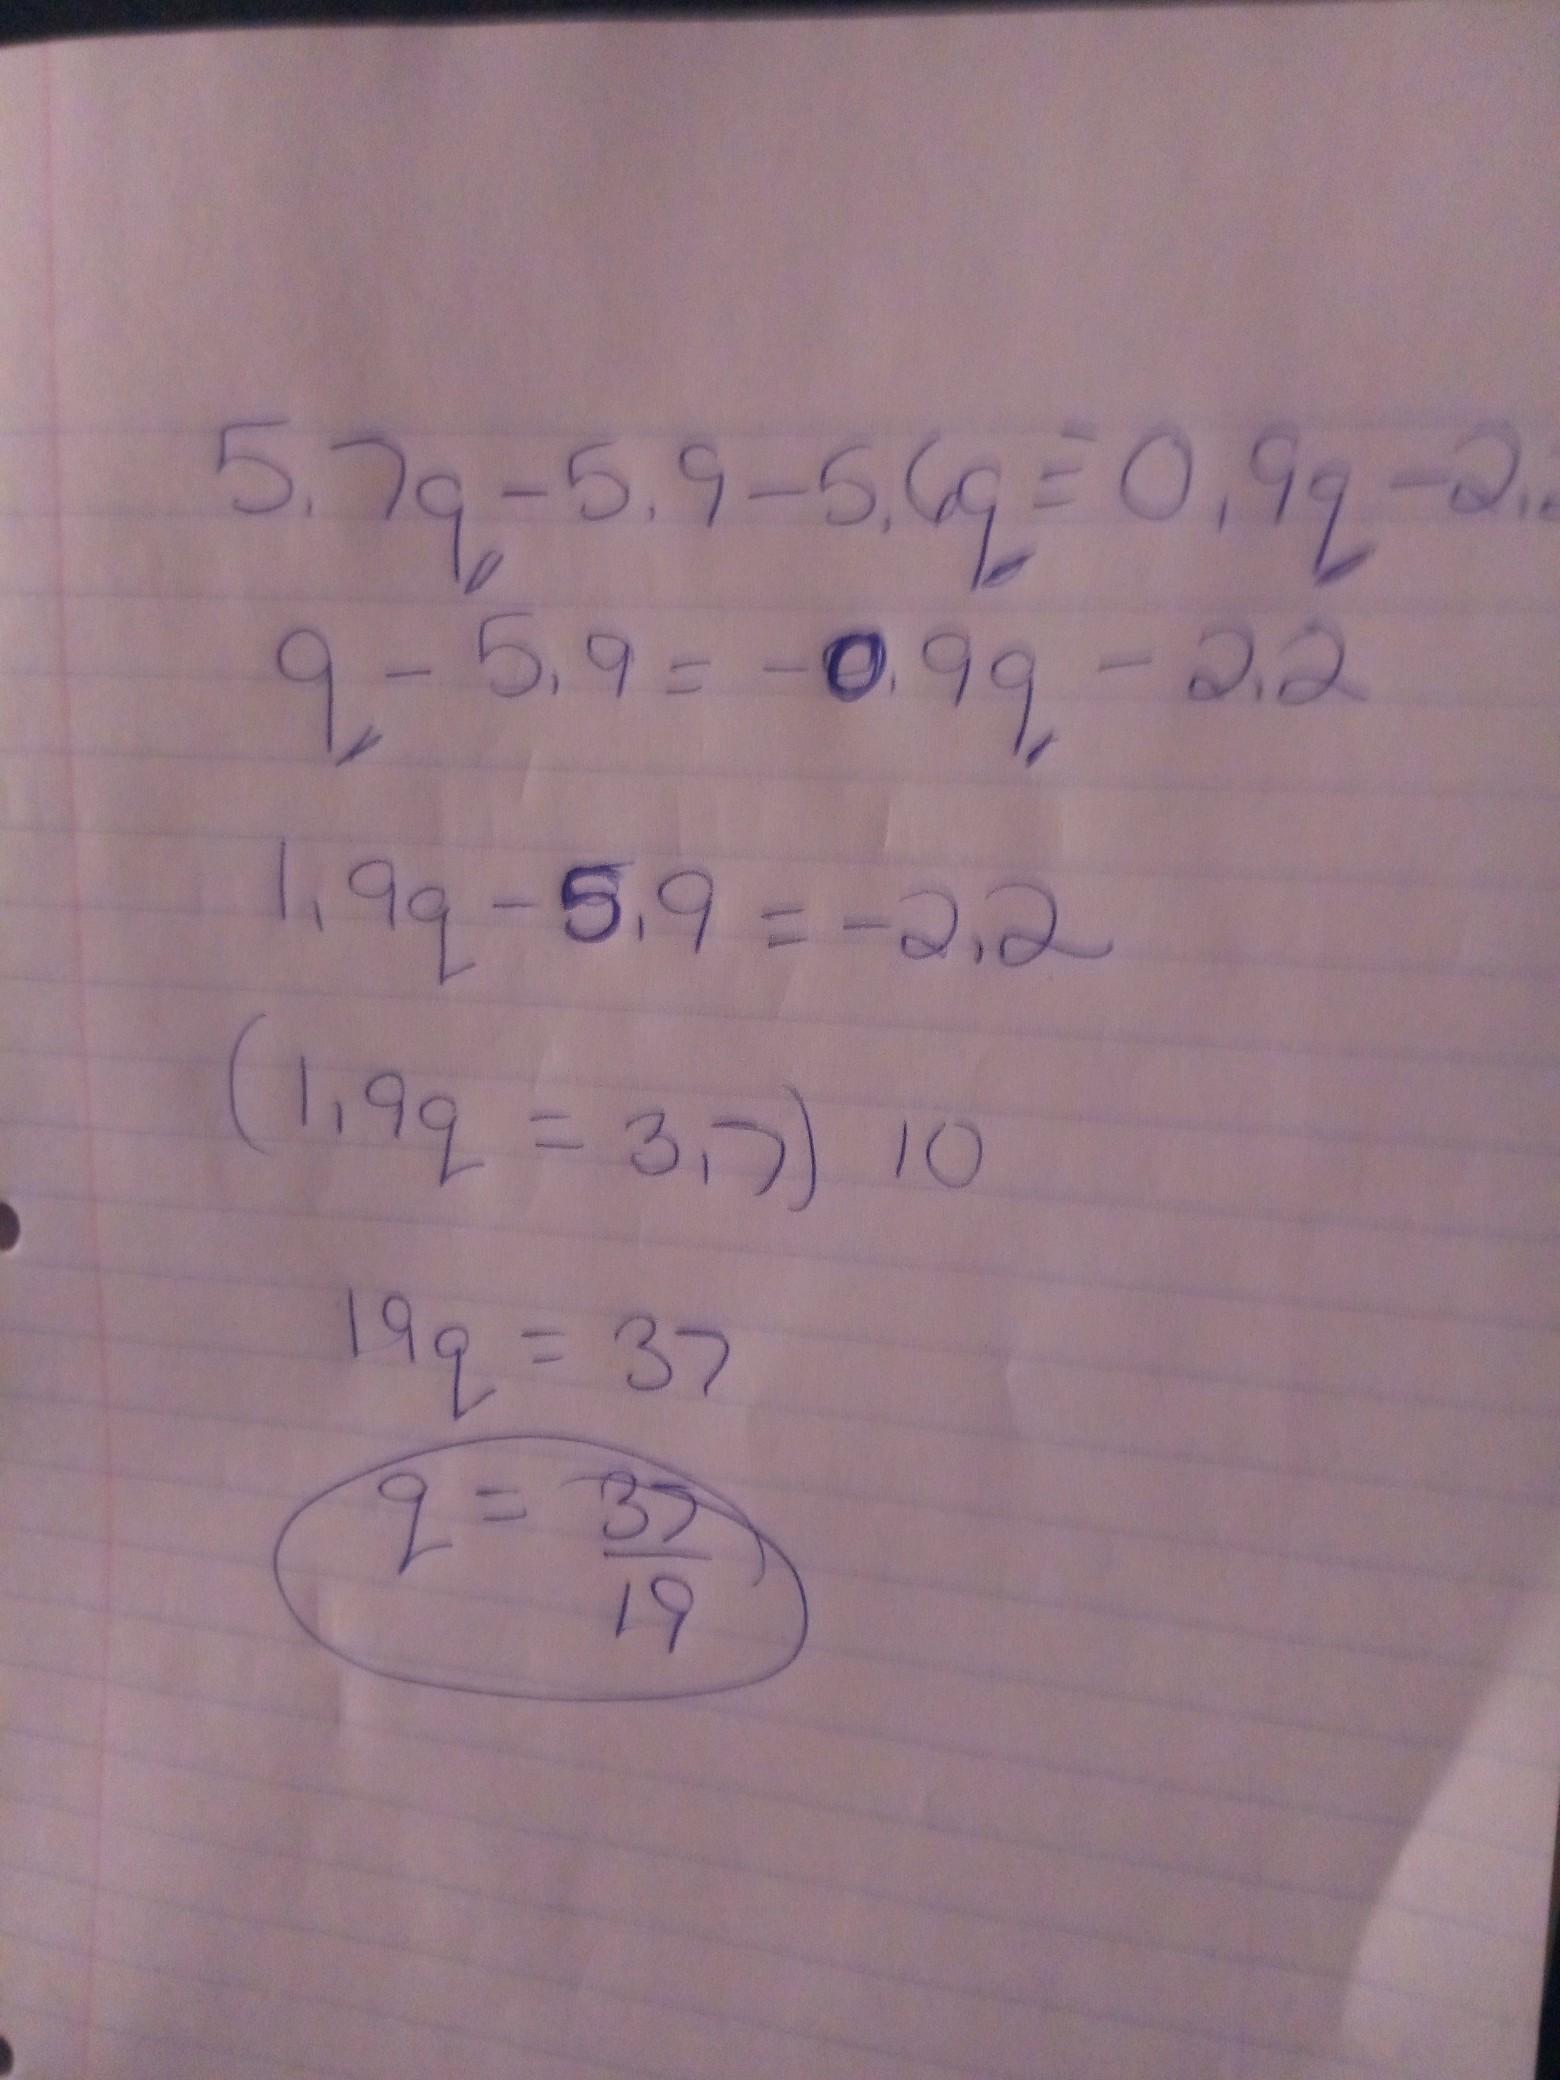 5.7q - 5.9 - 5.6q = 0.9q - 2.
q - 5.9 = -0.9q - 2.2
1.9q - 5.9 = -2.2
(1.9q = 3.7) 10
19q = 37
q = 37/19